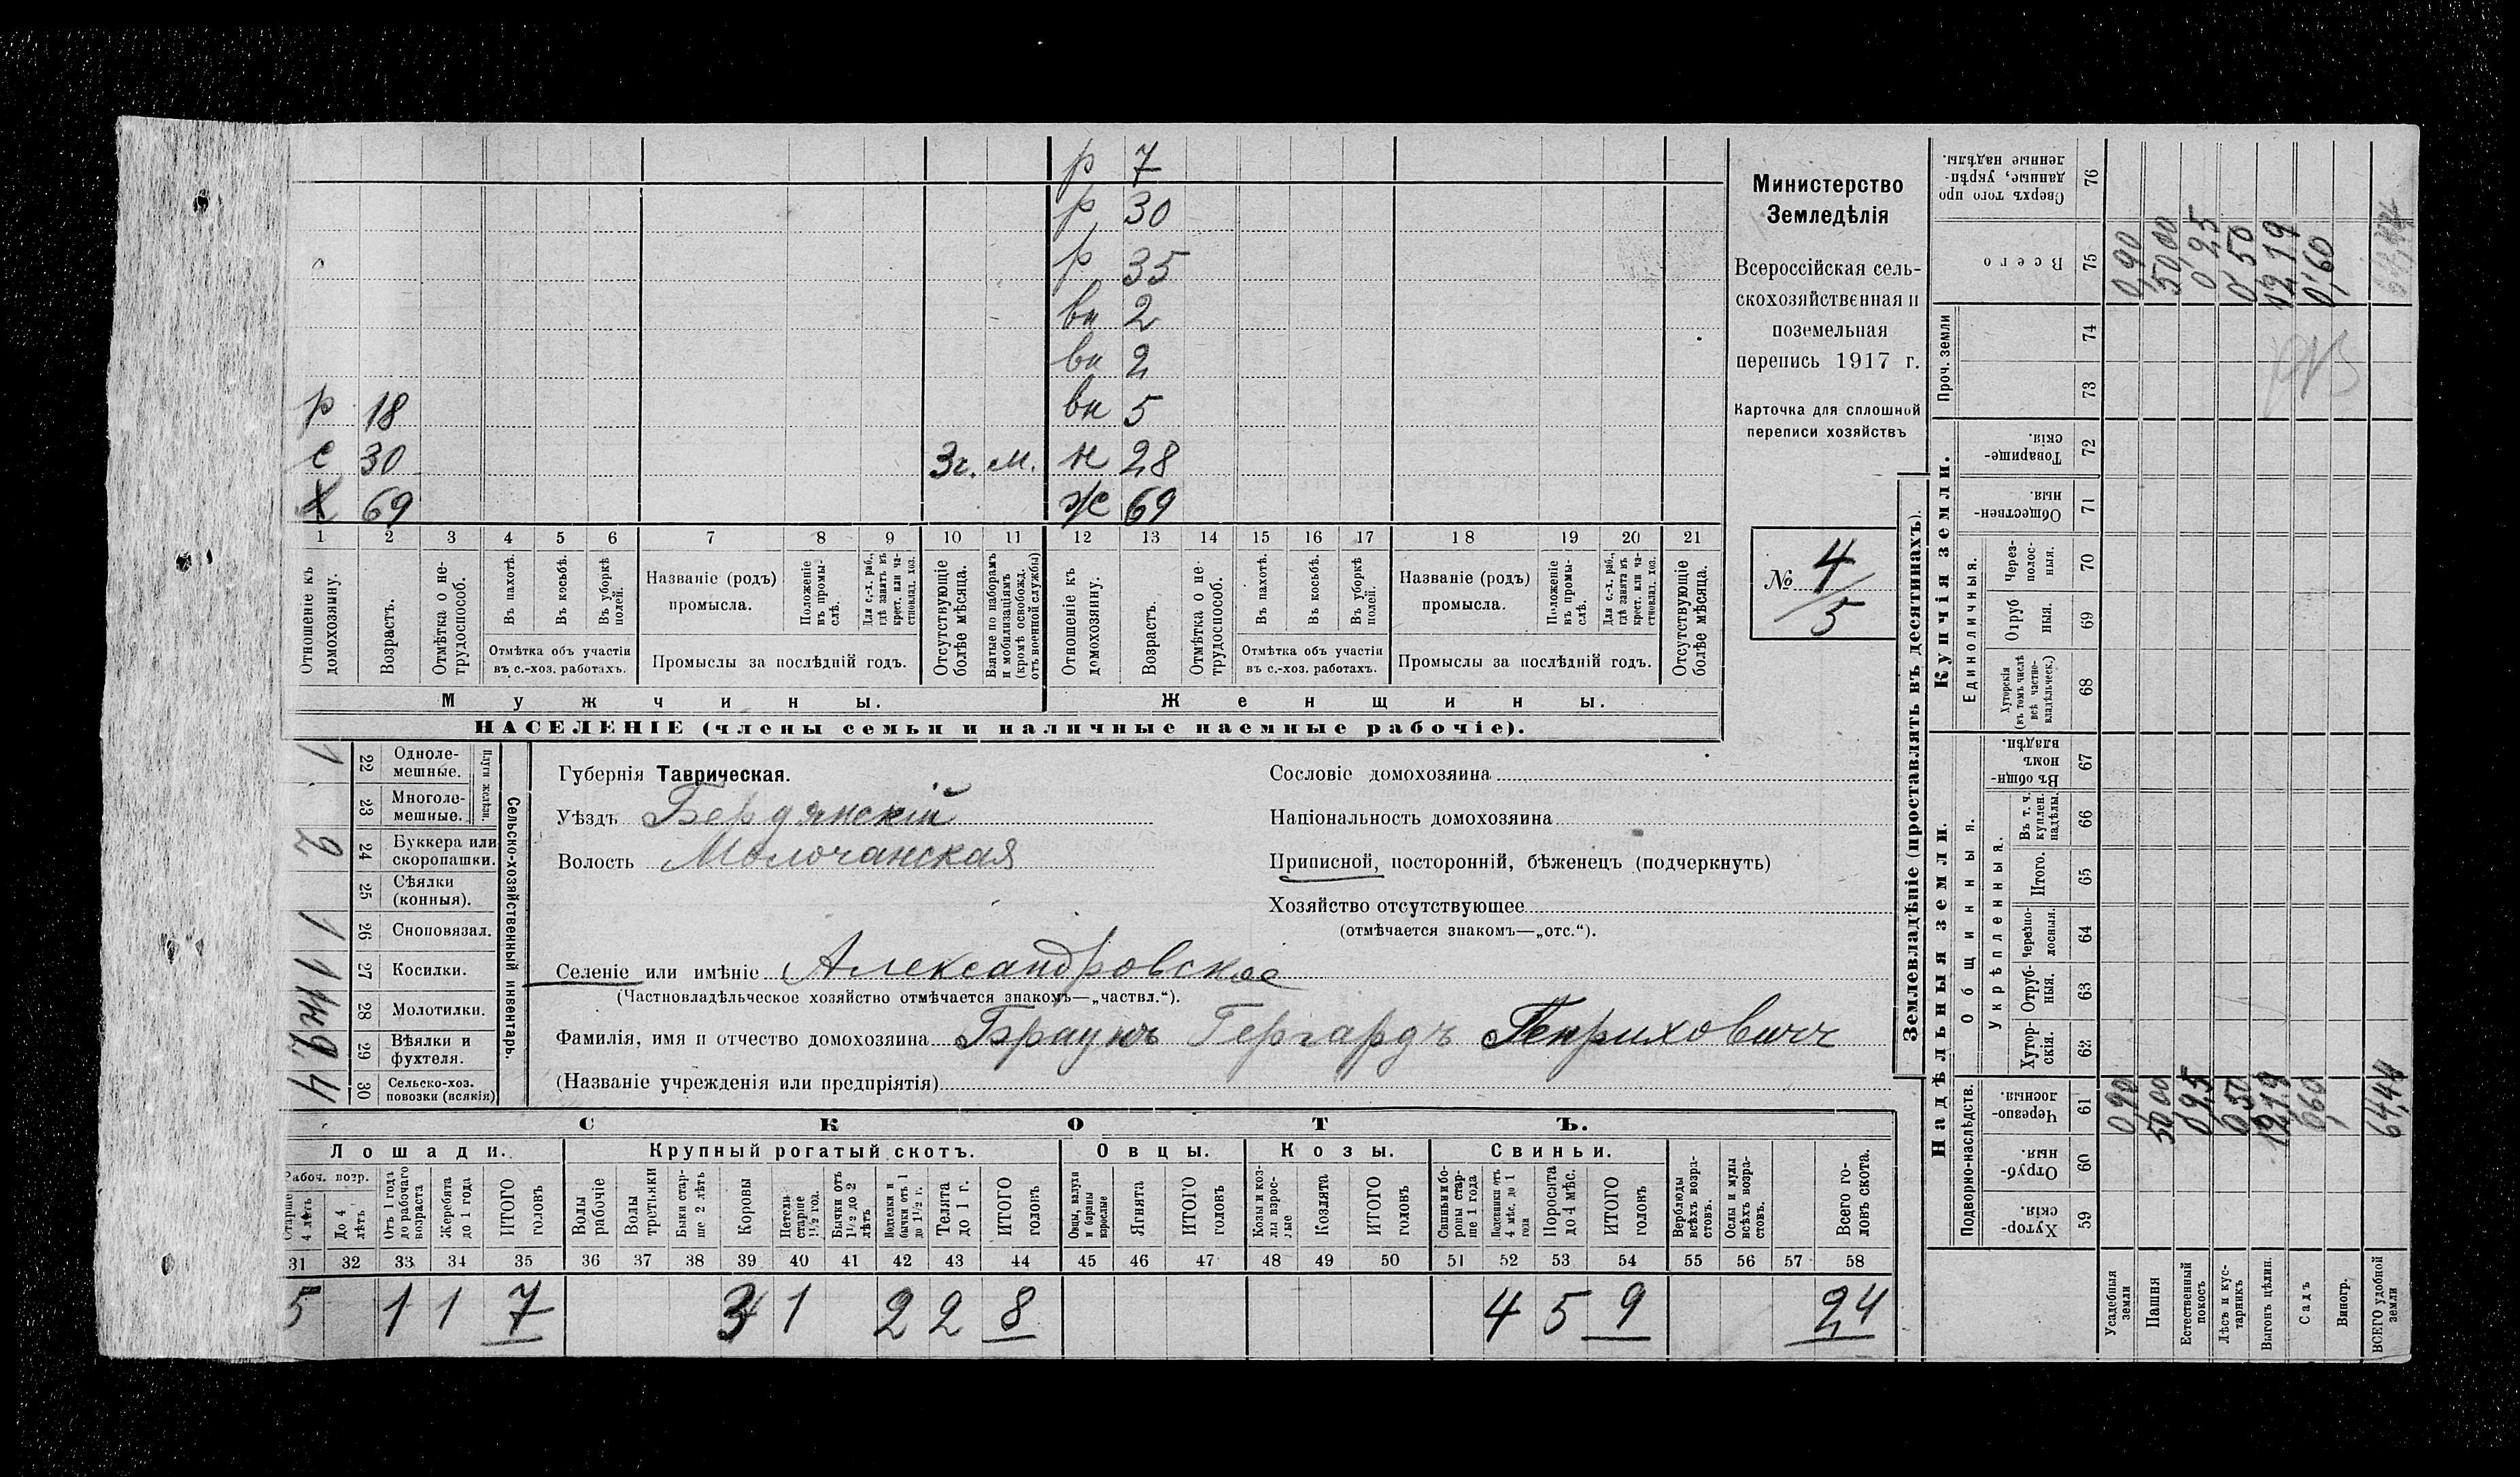 р 7
р 30
р 35
вн 2
вн 2
р 18 вн 5
с 30 3г. м. н 28
Х 69 ж 69
1 2 3 4 5 6 7 8 9 10 11 12 13 14 15 16 17 18 19 20 21
Отношеніе къ домохозяину.
Возрастъ.
Отмѣтка о нетрудоспособ.
Въ пахотѣ.
Въ косьбѣ.
Въ уборкѣ полей.
Отмѣтка объ участіи
въ с.-хоз. работахъ.
Названіе (родъ)
промысла.
Положеніе въ промыслѣ.
Для с.-х. раб., гдѣ занятъ въ крест. или частновлад. хоз.
Промыслы за послѣдній годъ.
Отсутствующіе болѣе мѣсяца.
Взятые по наборамъ и мобилизаціямъ (кромѣ освобожд. отъ военной службы)
Отношеніе къ домохозяину.
Возрастъ.
Отмѣтка о нетрудоспособ.
Въ пахотѣ.
Въ косьбѣ.
Въ уборкѣ полей.
Отмѣтка объ участіи
въ с.-хоз. работахъ.
Названіе (родъ)
промысла.
Положеніе въ промыслѣ.
Для с.-х. раб., гдѣ занята въ крест. или частновлад. хоз.
Промыслы за послѣдній годъ.
Отсутствующіе болѣе мѣсяца.
Мужчины. Женщины.
НАСЕЛЕНІЕ (члены семьи и наличные наемные рабочіе).
Министерство
Земледѣлія
Всероссійская сель-
скохозяйственная и
поземельная
перепись 1917 г.
Карточка для сплошной
переписи хозяйствъ
№ 4/5
Сельско-хозяйственный инвентарь.
Плуги желѣзн.
1 22 Одноле-
мешные.
23 Многоле-
мешные.
2 24 Буккера или
скоропашки.
25 Сѣялки
(конныя).
1 26 Сноповязал.
1 27 Косилки.
28 Молотилки.
29 Вѣялки и
фухтеля.
4 30 Сельско-хоз.
повозки (всякія)
Губернія Таврическая.
Уѣздъ Бердянскій
Волость Молочанская
Селеніе или имѣніе Александровское
(Частновладѣльческое хозяйство отмѣчается знакомъ—„частвл.“).
Фамилія, имя и отчество домохозяина Браунъ Гергардъ Генриховичъ
(Названіе учрежденія или предпріятія)
Сословіе домохозяина
Національность домохозяина
Приписной, посторонній, бѣженецъ (подчеркнуть)
Хозяйство отсутствующее
(отмѣчается знакомъ—„отс.“).
СКОТЪ.
Лошади. Крупный рогатый скотъ. Овцы. Козы. Свиньи.
Рабоч. возр.
Старше 4 лѣтъ
До 4 лѣтъ
Отъ 1 года до рабочаго возраста
Жеребята до 1 года
ИТОГО головъ
Волы рабочіе
Волы третьяки
Быки старше 2 лѣтъ
Коровы
Нетели старше 1½ год.
Бычки отъ 1½ до 2 лѣтъ
Подтелки и бычки отъ 1 до 1½ г.
Телята до 1 г.
ИТОГО головъ
Овцы, валухи и бараны взрослые
Ягнята
ИТОГО головъ
Козы и козлы взрослые
Козлята
ИТОГО головъ
Свиньи и бороны старше 1 года
Подсвинки отъ 4 мѣс. до 1 года
Поросята до 4 мѣс.
ИТОГО головъ
Верблюды всѣхъ возрастовъ.
Ослы и мулы всѣхъ возрастов.
Всего головъ скота.
31 32 33 34 35 36 37 38 39 40 41 42 43 44 45 46 47 48 49 50 51 52 53 54 55 56 57 58
5 1 1 7 3 1 2 2 8 4 5 9 24
Землевладѣніе (проставлять въ десятинахъ).
Надѣльныя земли.
Купчія земли.
Проч. земли
Подворно-наслѣдств.
Общинныя.
Укрѣпленныя.
Единоличныя.
Хутор-
скія. 59
Отруб-
ныя. 60
Черезпо-
лосныя. 61
Хутор-
скія. 62
Отруб-
ныя. 63
Черезпо-
лосныя. 64
Итого. 65
Въ т. ч.
куплен.
надѣлы. 66
Въ общи-
номъ
владѣн. 67
Хуторскія
(въ томъ числѣ
всѣ частно-
владѣльческ.) 68
Отруб
ныя. 69
Через-
полос-
ныя. 70
Обществен-
ныя. 71
Товарище-
скія. 72
73
74
Всего 75
Сверхъ того про
данные, укрѣп-
ленные надѣлы. 76
Усадебныя земли 0,90 0,90
Пашня 50,00 50,00
Естественный покосъ 0,25
Лѣсъ и кустарникъ 0,50 0,50
Выгонъ цѣлин. 12,19 12,19
Садъ 0,60 0,60
Виногр.
ВСЕГО удобной земли 64,44